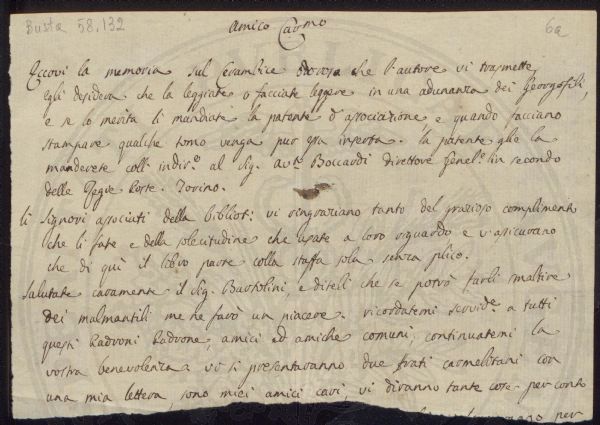 Busta 58.132
6a
Amico Car.mo
Eccovi la memoria sul Cerambice odoroso che l'autore vi trasmette
egli desidera che la leggiate o facciate leggere in una adunanza dei Georgofili,
e se lo merita li mandiate la patente d'associazione e quando facciano
stampare qualche tomo venga pur essa inserta. la patente glie la
manderete coll'indir.o al Sig. Avt.o Boccardi direttore Genel.e in secondo
delle Regie Poste. Torino.
li Signori associati della bibliot: vi ringraziano tanto del grazioso complimento
che li fate e della solecitudine che usate a loro riguardo e v'assicurano
che di quì il libro parte colla staffa sola senza plico.
Salutate caramente il Sig. Bartolini, e diteli che se potrò farli smaltire
dei malmantili me ne farò un piacere. ricordatemi servid.e a tutti
questi Padroni Padrone, amici ed amiche comuni, continuatemi la
vostra benevolenza vi si presentaranno due frati carmelitani con
una mia lettera, sono miei amici cari, vi diranno tante cose per conto
per